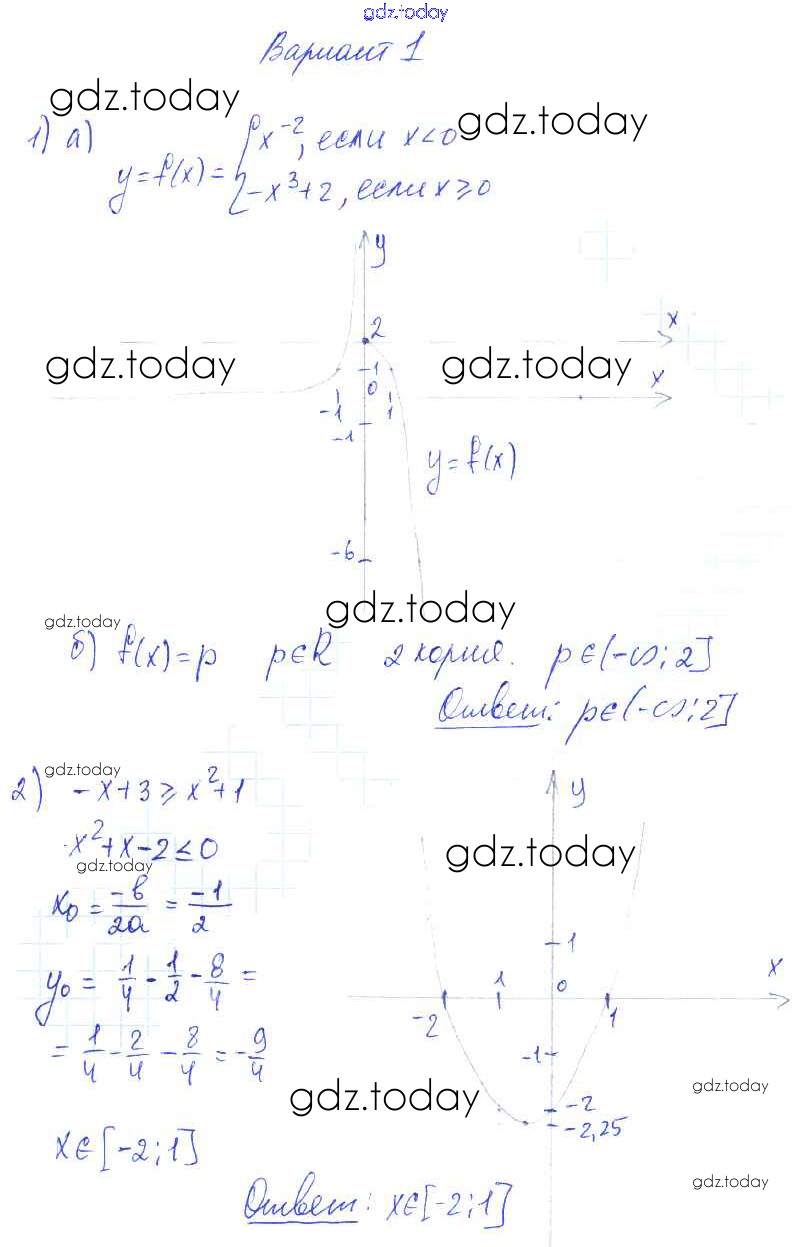 gdz.today
Вариант 1
gdz.today
1) а)
y = f(x) = { x⁻², если x < 0
gdz.today
-x³ + 2, если x ≥ 0
y
2
x
gdz.today
gdz.today
1
0
x
-1
1
-1
y = f(x)
-6
gdz.today
gdz.today
б) f(x) = p p ∈ R 2 корня. p ∈ (-∞; 2]
Ответ: p ∈ (-∞; 2]
gdz.today
2) -x + 3 ≥ x² + 1
y
x² + x - 2 ≤ 0
gdz.today
gdz.today
x₀ = -в/2а = -1/2
y₀ = 1/4 - 1/2 - 8/4 =
= 1/4 - 2/4 - 8/4 = -9/4
1
1
0
x
-2
1
-1
-2
-2,25
gdz.today
gdz.today
x ∈ [-2; 1]
gdz.today
Ответ: x ∈ [-2; 1]